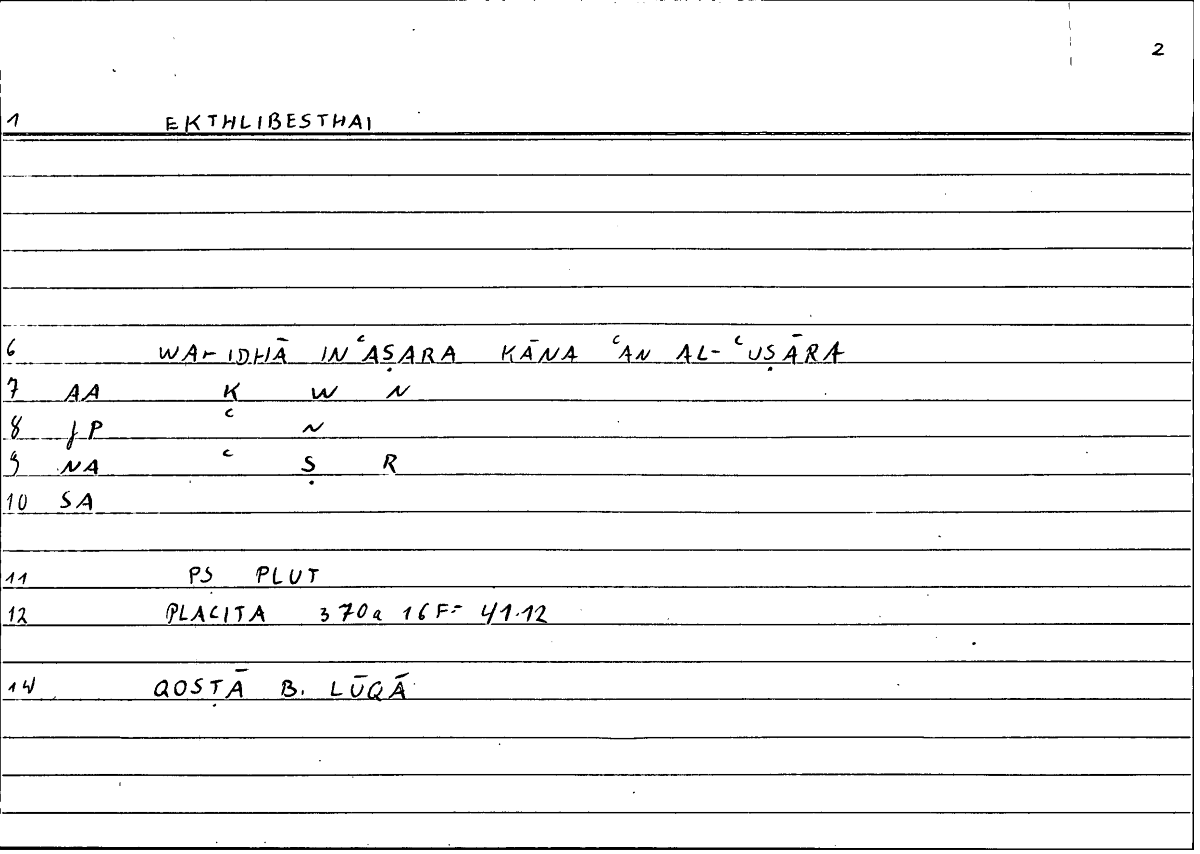 2
1 EKTHLIBESTHAI
6 WA-IDHĀ INʿAṢARA KĀNA ʿAN AL-ʿUṢĀRA
7 AA K W N
8 JP ʿ N
9 NA ʿ Ṣ R
10 SA
11 PS PLUT
12 PLACITA 370a 16F= 41.12
14 QOSṬĀ B. LŪQĀ